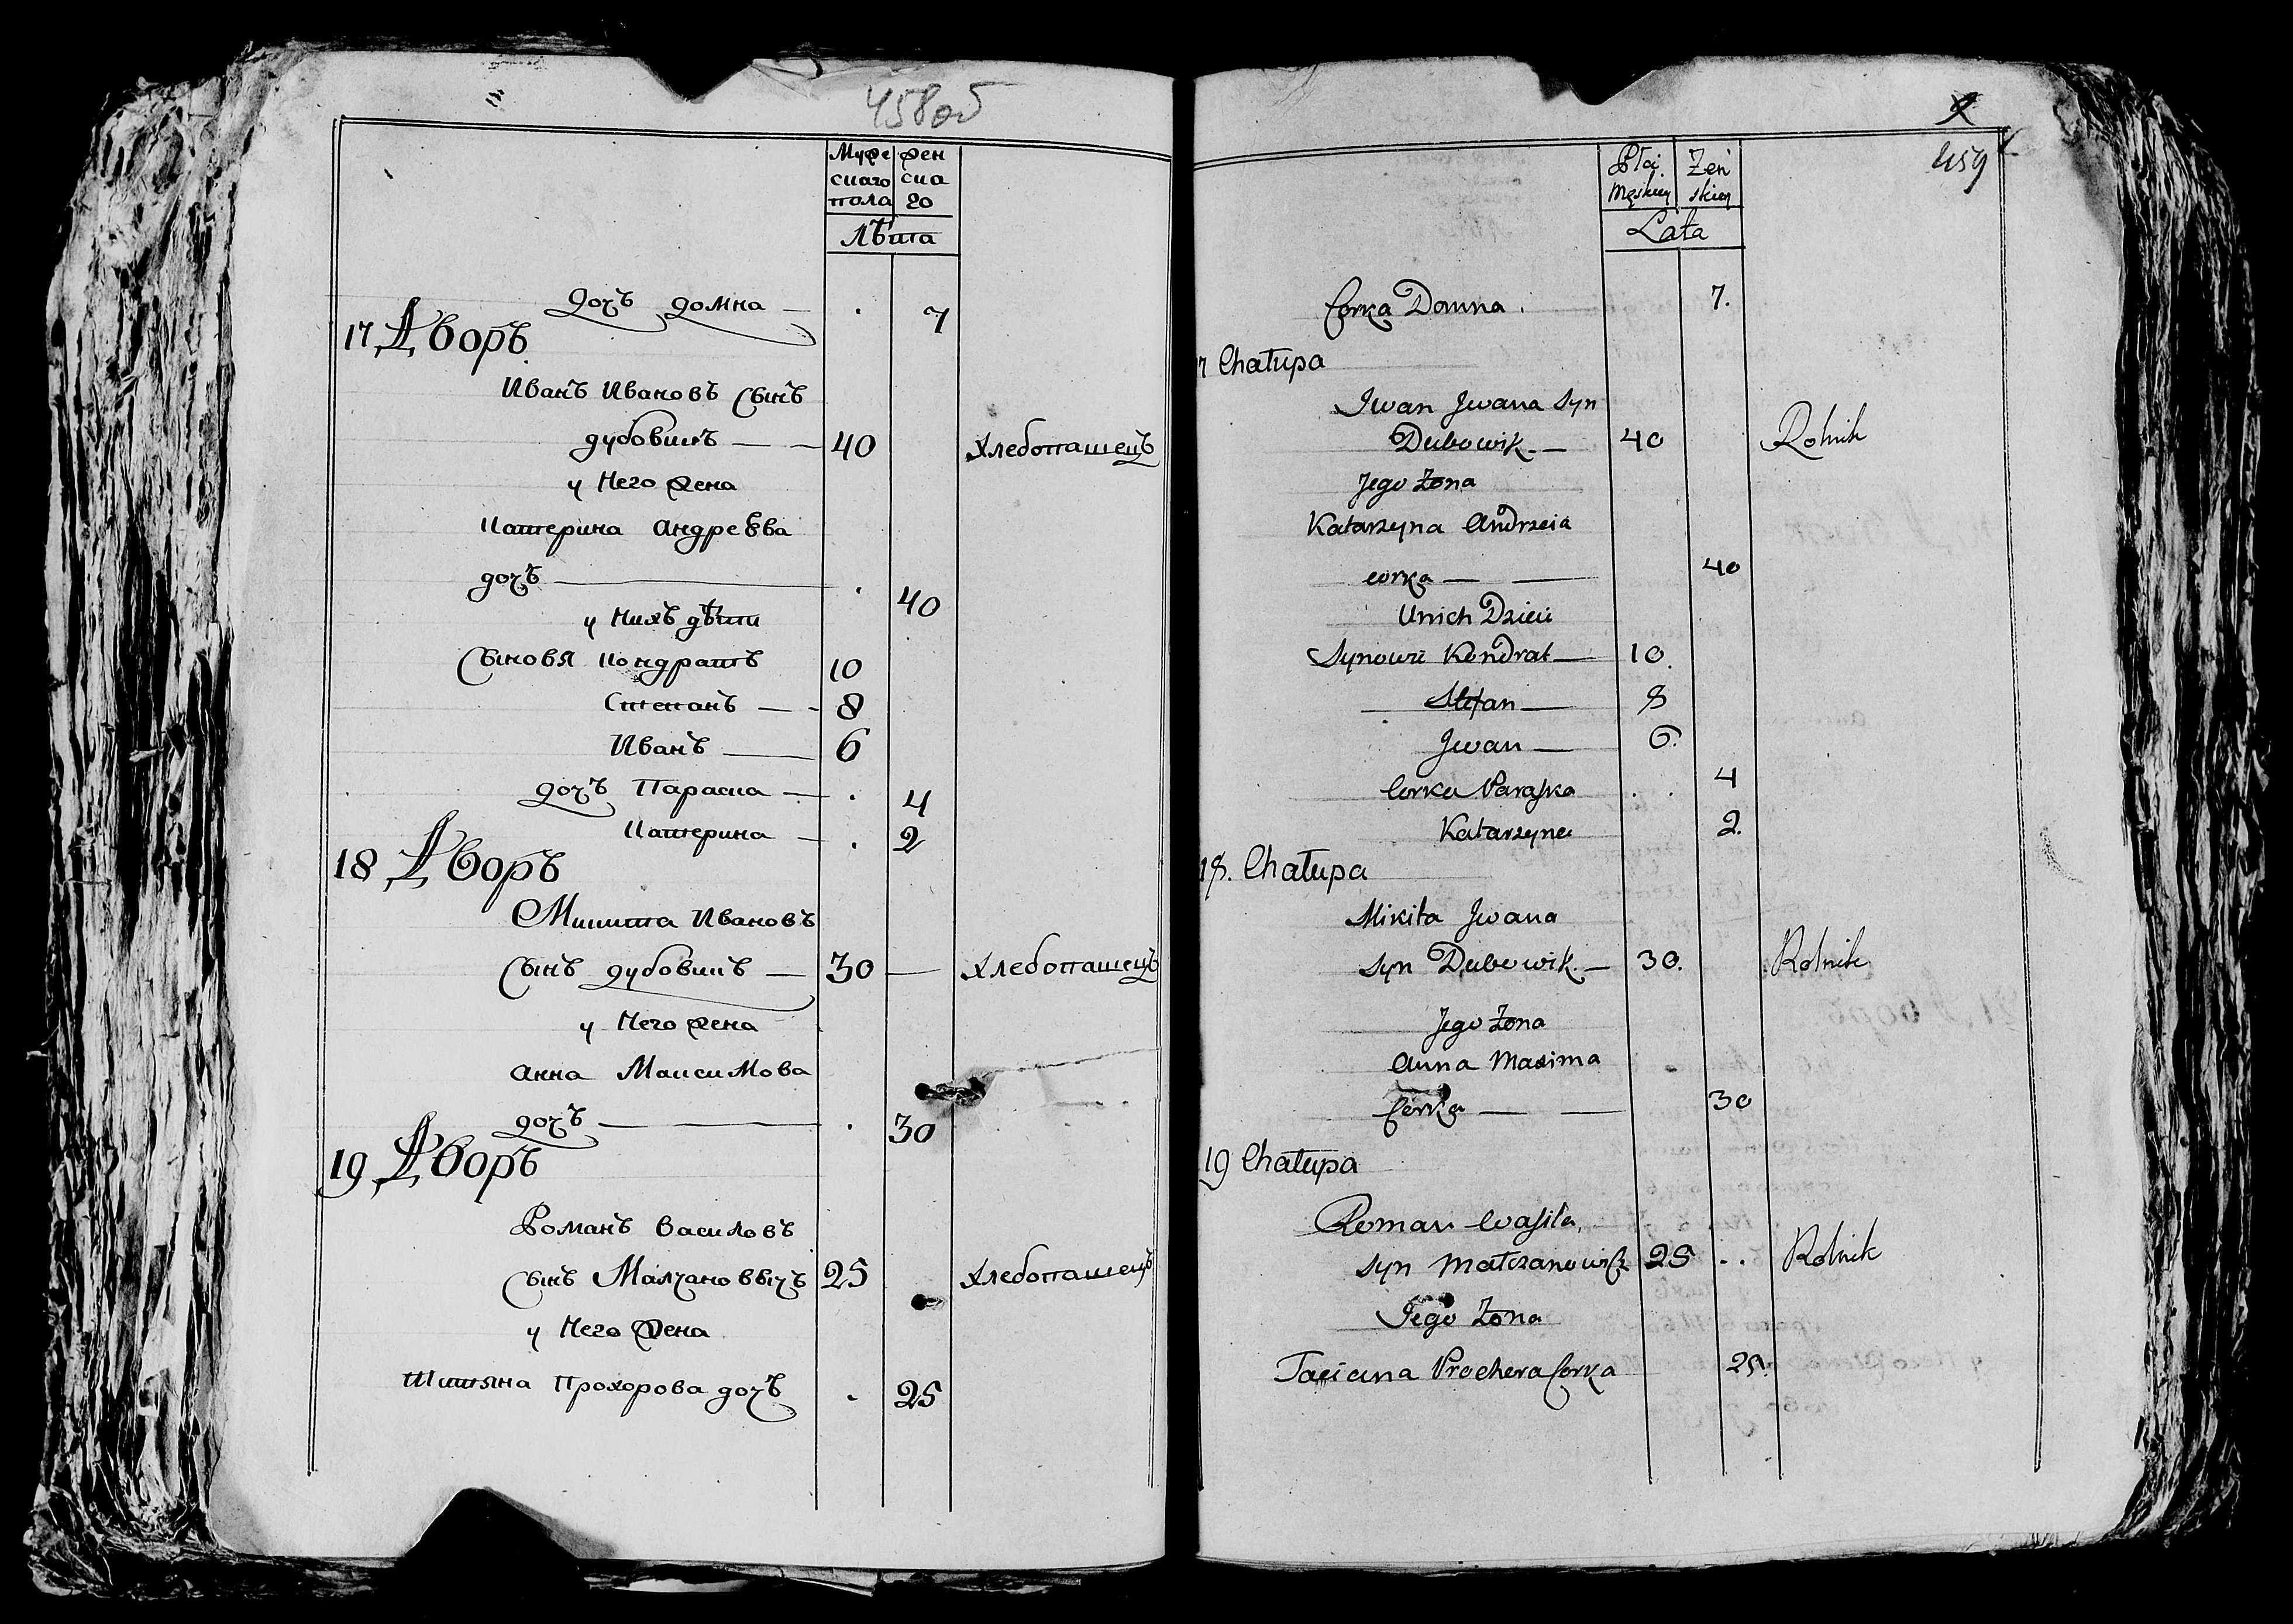 458об
Муже жен
скаго ска
пола го
Лѣта
дочъ домна — . 7
17 Дворъ
Иванъ Ивановъ Сынъ
дубовикъ — — 40 хлебопашецъ
у Него жена
Катерина андреѣва
дочъ — . 40
у Нихъ дѣти
Сыновя Кондратъ 10
Степанъ — - 8
Иванъ — 6
дочъ Параска — . 4
Катерина — . 2
18 Дворъ
Микита Ивановъ
Сынъ дубовикъ — 30 — хлебопашецъ
у Него жена
анна Максимова
дочъ — . 30
19 Дворъ
Романъ василовъ
Сынъ Малчановичъ 25 хлебопашецъ
у Него жена
Титяна Прохорова дочъ . 25
2
459
Płci Żeń
Męskiey skiey
Lata
Corka Domna . 7.
17 Chałupa
Iwan Jwana Syn
Dubowik. — 40 Rolnik
Jego Żona
Katarzyna Andrzeia
corka — — 40
Unich Dzieci
Synowie Kondrat — 10.
Stefan — 8
Jwan — 6.
Corka Paraska . . 4
Katarzyna 2.
18. Chałupa
Mikita Jwana
syn Dubowik. — 30. Rolnik
Jego Żona
Anna Maxima
Corka — — 30
19 Chałupa
Roman Wasila
syn Małczanowicz 25 .. Rolnik
Jego Żona
Taciana Prochora Corka 25.